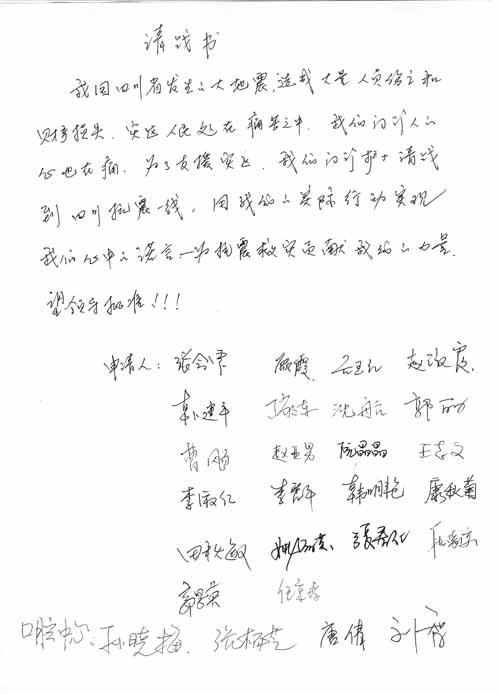 请战书
我国四川省发生了大地震,造成大量人员伤亡和
财产损失.灾区人民处在痛苦之中.我们门诊人的
心也在痛.为了支援灾区.我们门诊护士请战
到四川抗震一线,用我们的实际行动实现
我们心中的诺言—为抗震救灾贡献我们的力量.
望领导批准!!!
申请人: 顾霞. 赵政霞.
韩建平 沈航 郭
曹鹏 赵亚男 阮晶晶 王志文
李淑仁 李 韩明艳 康秋菊
田秋敏
任京
口腔中心: 孙晓梅. 张杨芝 唐伟